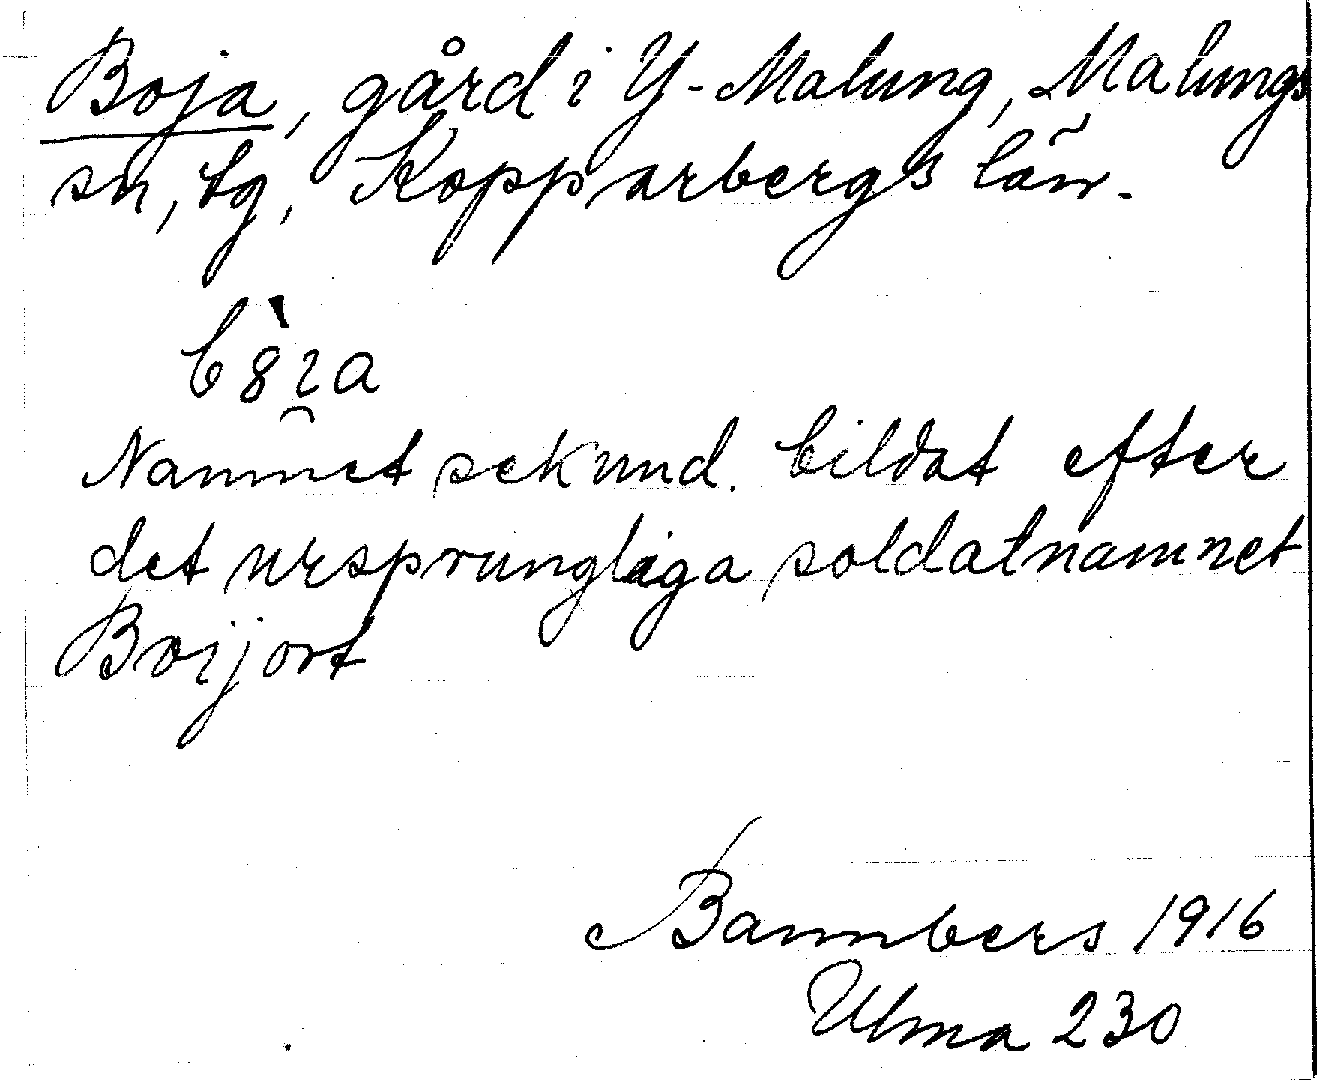 Boja, gård i Y-Malung, Malungs
sn, tg, Kopparbergs län.
Namnet sekund. bildat efter
det ursprungliga soldatnamnet
Boijort
Bannbers 1916
Ulma 230